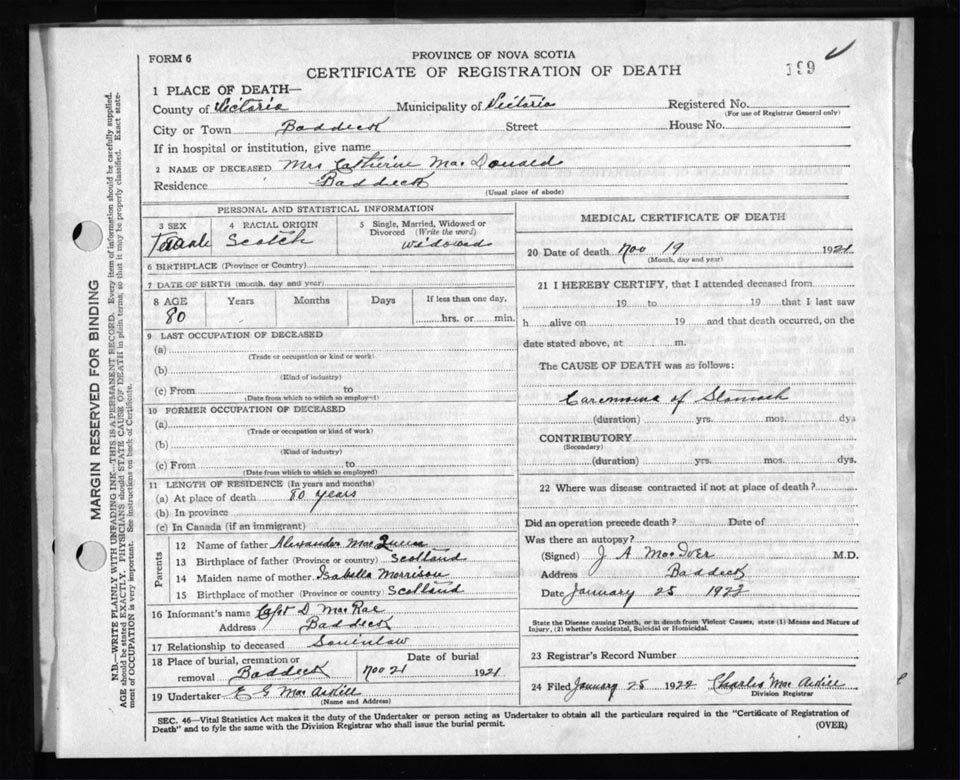 FORM 6
PROVINCE OF NOVA SCOTIA
CERTIFICATE OF REGISTRATION OF DEATH
199
1 PLACE OF DEATH—
County of Victoria Municipality of Victoria Registered No.
(For use of Registrar General only)
City or Town Baddeck Street House No.
If in hospital or institution, give name
2 NAME OF DECEASED Mrs Catherine MacDonald
Residence Baddeck
(Usual place of abode)
PERSONAL AND STATISTICAL INFORMATION
3 SEX Female
4 RACIAL ORIGIN Scotch
5 Single, Married, Widowed or Divorced (Write the word) widowed
6 BIRTHPLACE (Province or Country)
7 DATE OF BIRTH (month, day and year)
8 AGE Years Months Days If less than one day,
80 hrs. or min.
9 LAST OCCUPATION OF DECEASED
(a)
(Trade or occupation or kind or work)
(b)
(Kind of industry)
(c) From to
(Date from which to which so employed)
10 FORMER OCCUPATION OF DECEASED
(a)
(Trade or occupation or kind of work)
(b)
(Kind of industry)
(c) From to
(Date from which to which so employed)
11 LENGTH OF RESIDENCE (In years and months)
(a) At place of death 80 years
(b) In province
(c) In Canada (if an immigrant)
Parents
12 Name of father Alexander Mac
13 Birthplace of father (Province or country) Scotland
14 Maiden name of mother Isabella Morrison
15 Birthplace of mother (Province or country) Scotland
16 Informant's name Capt D. MacRae
Address Baddeck
17 Relationship to deceased Soninlaw
18 Place of burial, cremation or Date of burial
removal Baddeck Nov 21 1921
19 Undertaker E G MacAskill
(Name and Address)
MEDICAL CERTIFICATE OF DEATH
20 Date of death Nov 19 1921
(Month, day and year)
21 I HEREBY CERTIFY, that I attended deceased from
19 to 19 that I last saw
h alive on 19 and that death occurred, on the
date stated above, at m.
The CAUSE OF DEATH was as follows:
Carcinoma of Stomach
(duration) yrs. mos. dys
CONTRIBUTORY
(Secondary)
(duration) yrs. mos. dys.
22 Where was disease contracted if not at place of death?
Did an operation precede death? Date of
Was there an autopsy?
(Signed) J A MacIver M.D.
Address Baddeck
Date January 25 1922
State the Disease causing Death, or in death from Violent Causes, state (1) Means and Nature of
Injury, (2) whether Accidental, Suicidal or Homicidal.
23 Registrar's Record Number
24 Filed January 25 1922 Charles MacAskill
Division Registrar
SEC. 46—Vital Statistics Act makes it the duty of the Undertaker or person acting as Undertaker to obtain all the particulars required in the "Certificate of Registration of
Death" and to fyle the same with the Division Registrar who shall issue the burial permit.
(OVER)
MARGIN RESERVED FOR BINDING
N.B.—WRITE PLAINLY WITH UNFADING INK—THIS IS A PERMANENT RECORD. Every item of information should be carefully supplied.
AGE should be stated EXACTLY. PHYSICIANS should STATE CAUSE OF DEATH in plain terms, so that it may be properly classified. Exact state-
ment of OCCUPATION is very important. See instructions on back of Certificate.